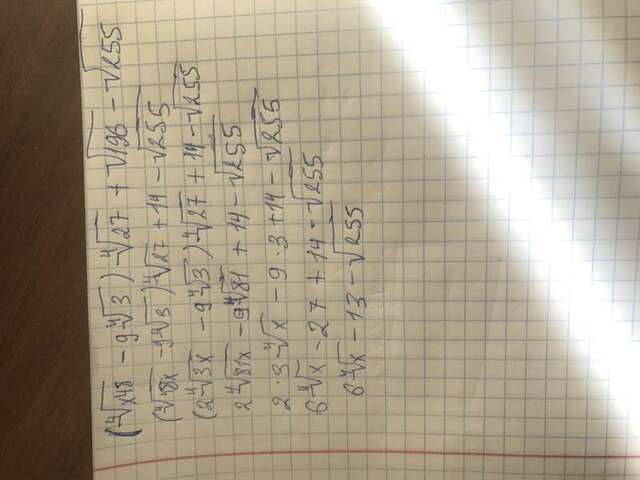 (∜x48 - 9∜3) ∜27 + √196 - √255
(∜48x - 9∜3) ∜27 + 14 - √255
(2∜3x - 9∜3) ∜27 + 14 - √255
2∜81x - 9∜81 + 14 - √255
2 · 3∜x - 9 · 3 + 14 - √255
6∜x - 27 + 14 - √255
6∜x - 13 - √255